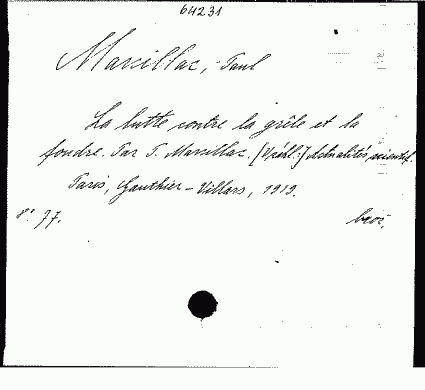 64231
Marcillac, Paul
La lutte contre la grêle et la
foudre. Par P. Marcillac. (Vpétl.:) Actualités scientif.
Paris, Gauthier-Villars, 1919.
8° 77.
broš.